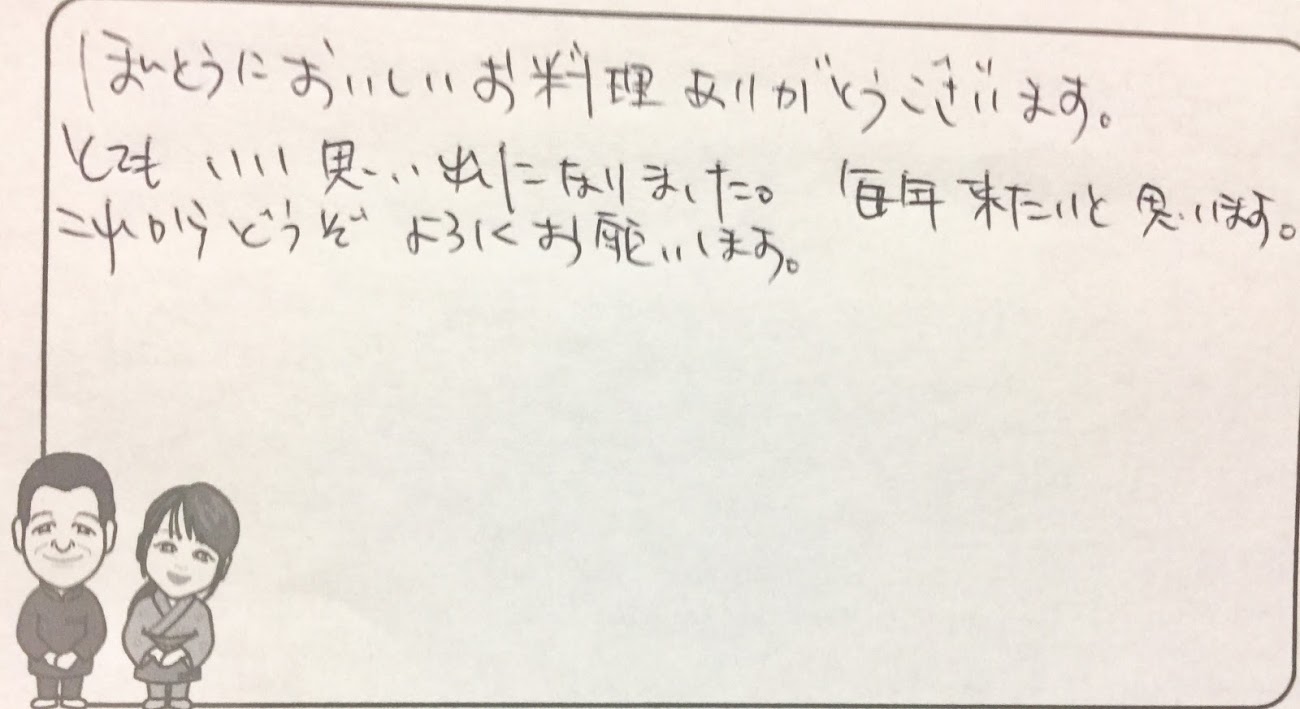 ほんとうにおいしいお料理ありがとうございます。
とてもいい思い出になりました。毎年来たいと思います。
これからどうぞよろしくお願いします。